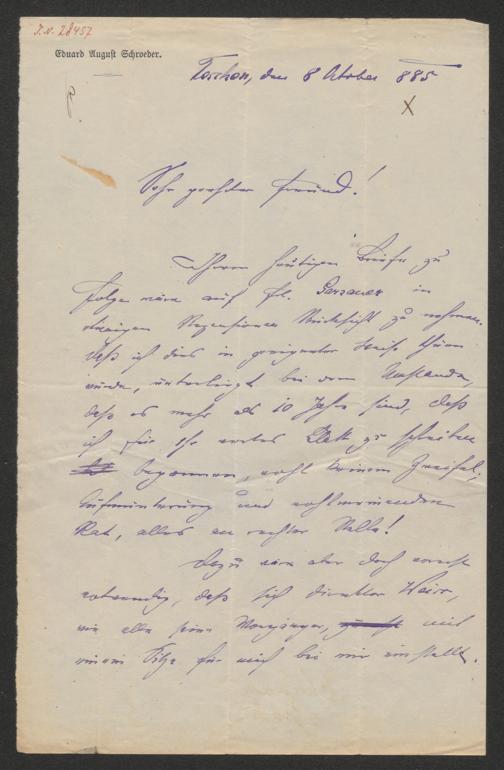 I.N. 28457
Eduard August Schroeder.
Teschen, den 8 Oktober 885
X
Sehr geehrter Freund!
Ihrem heutigen Briefe zu
Folge wäre auf Frl. in
etwaigen Rezensionen Rücksicht zu nehmen.
Daß ich dies in geeigneter Weise thun
würde, unterliegt bei dem Umstande,
daß es mehr als 10 Jahre sind, daß
ich für Ihr Blatt zu schreiben
begonnen, wohl keinem Zweifel;
Aufmunterung und wohlmeinenden
Rat, alles an rechter Stelle!
Dazu wäre aber doch vorerst
notwendig, daß sich Direktor
wie alle seine Vorgänger, mit
einem Sitze für mich bei mir einstellt.